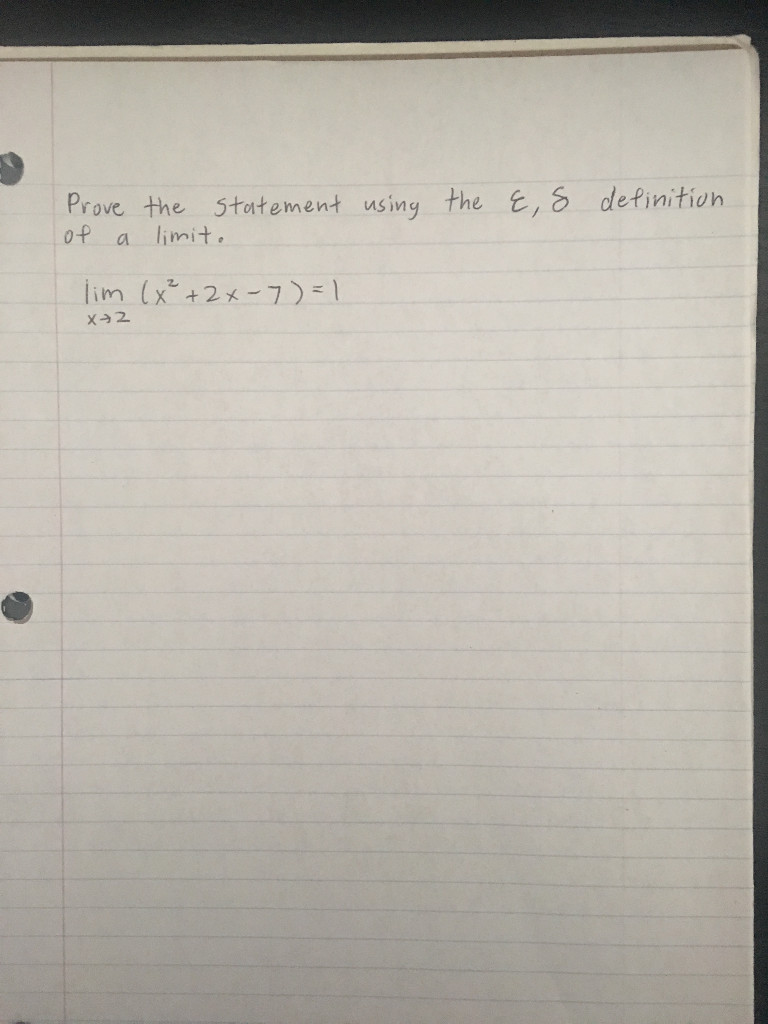 Prove the statement using the ε, δ definition
of a limit.
lim (x² + 2x - 7) = 1
x→2